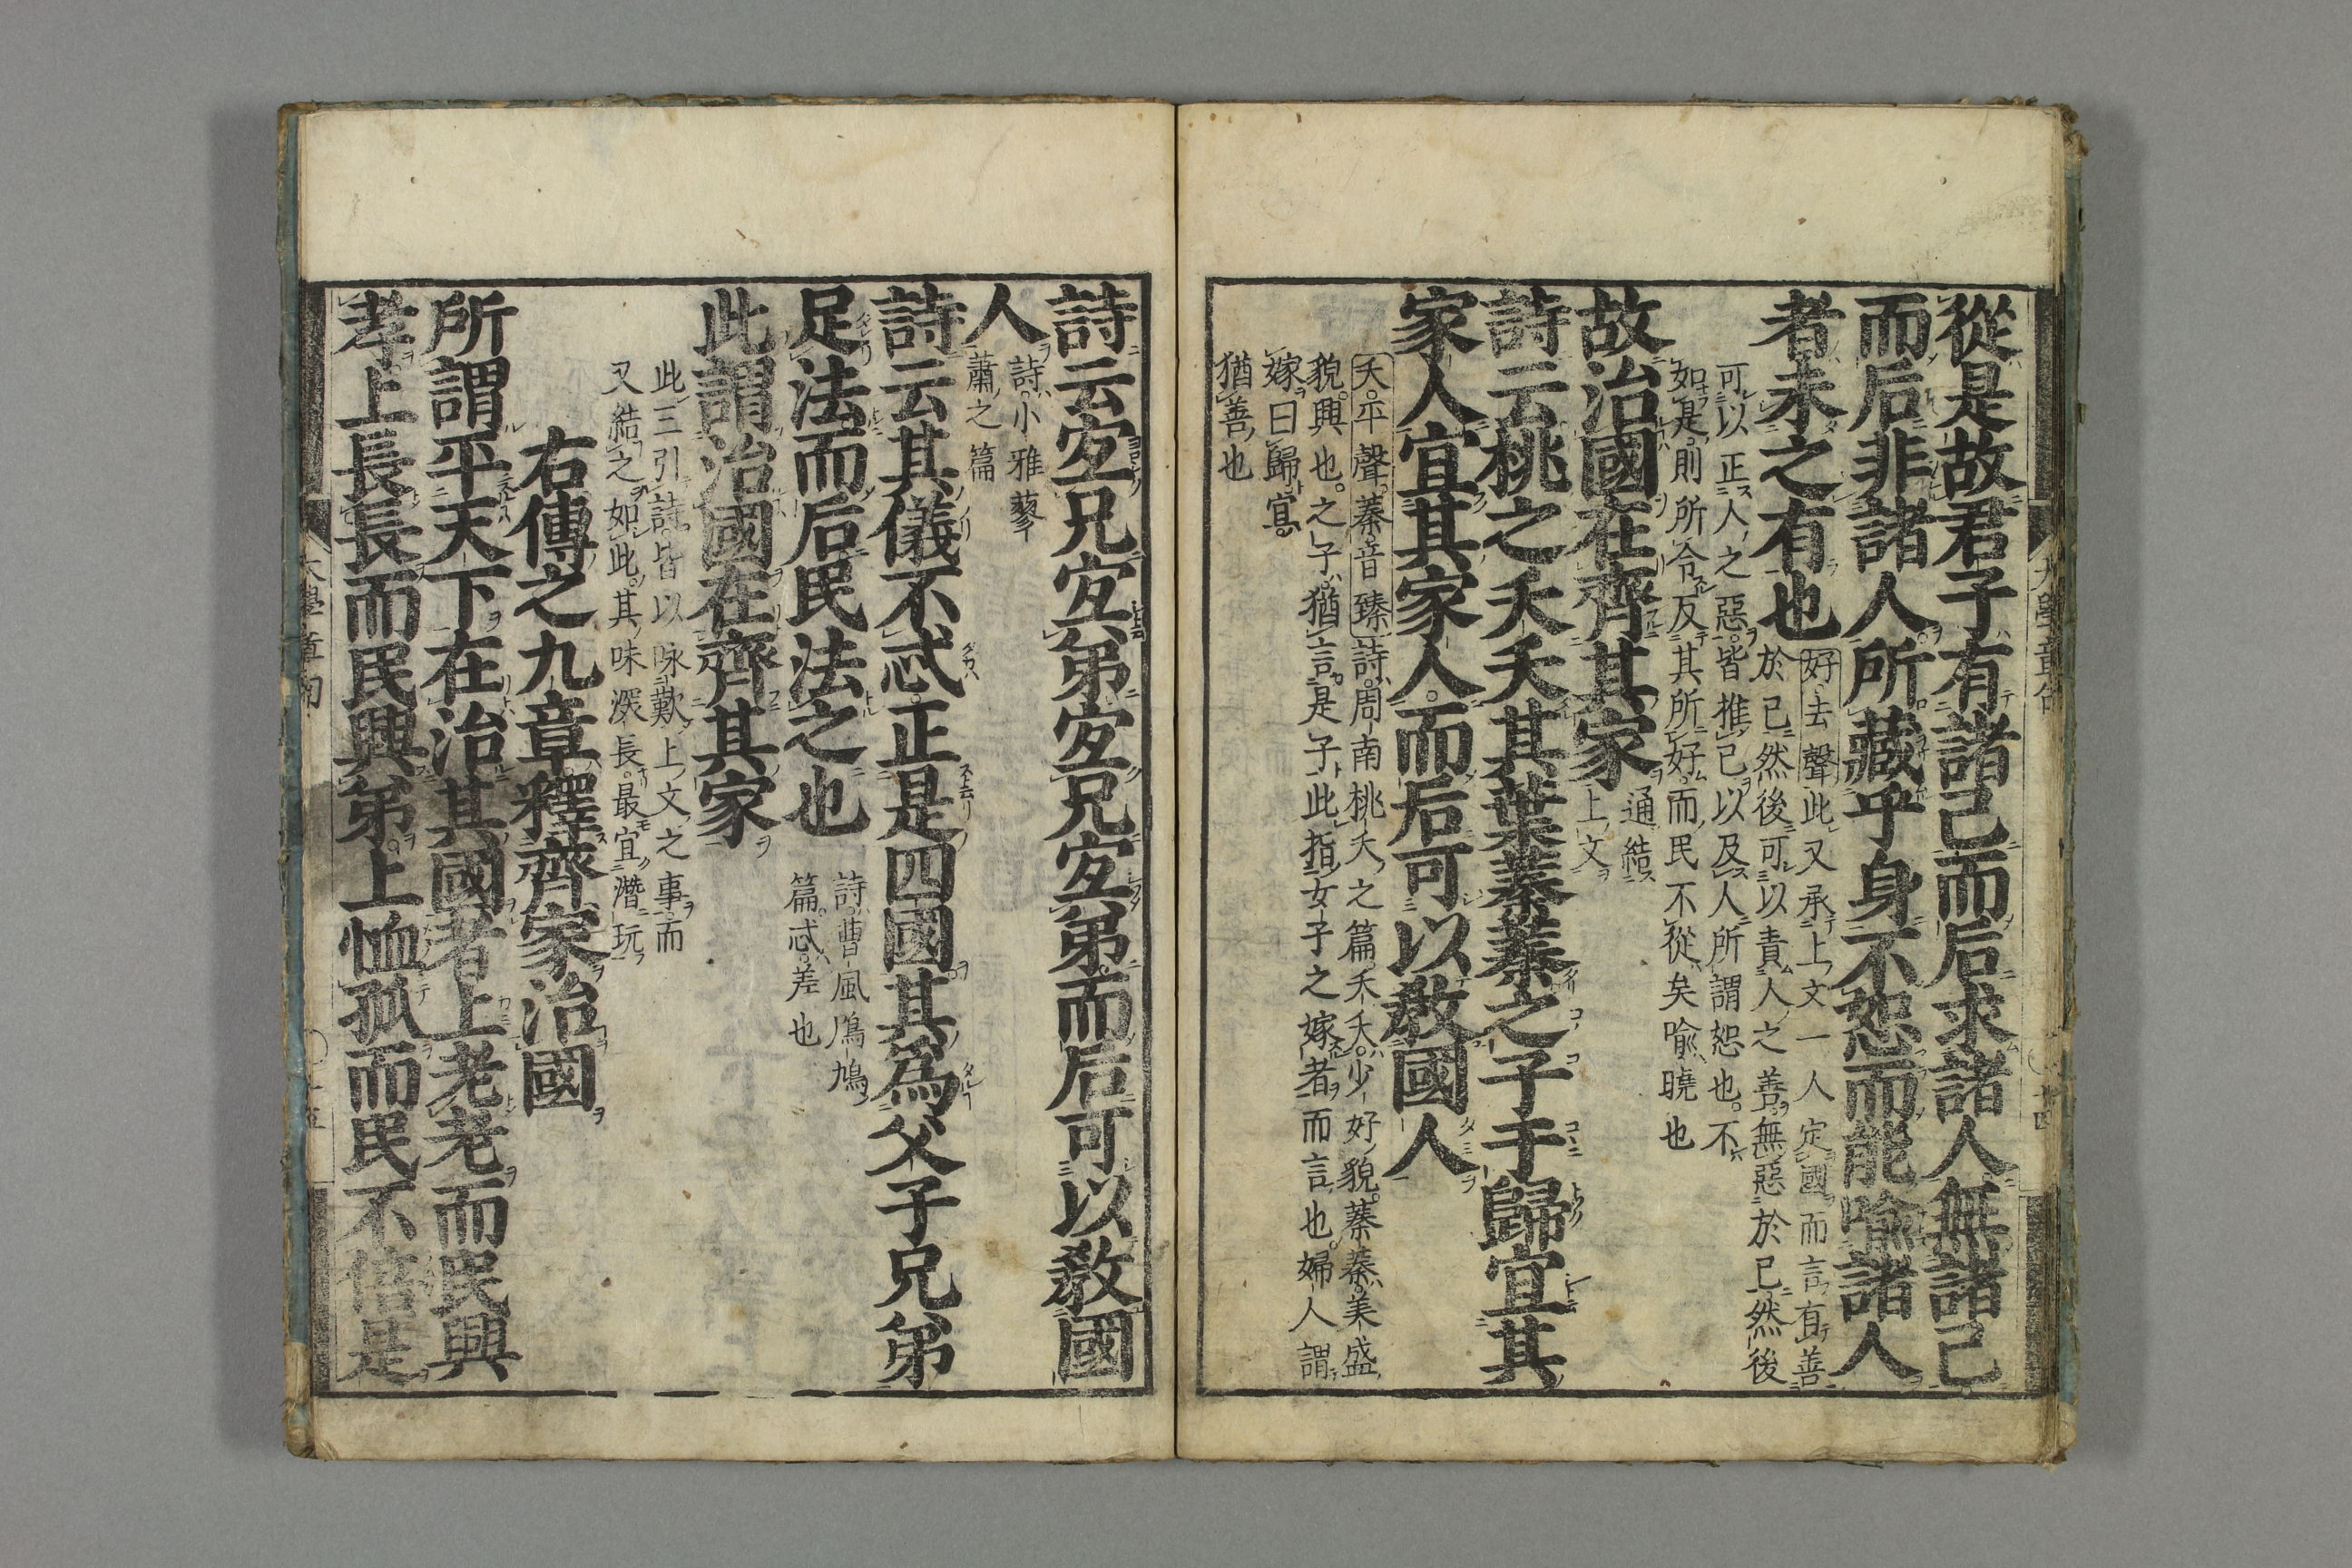 從是故君子有諸己而后求諸人無諸己
而后非諸人所藏乎身不恕而能喩諸人
者未之有也
好去聲此又承上文一人定國而言有善
於己然後可以責人之善無惡於己然後
可以正人之惡皆推己以及人所謂恕也不
如是則所令反其所好而民不從矣喩曉也
故治國在齊其家
通結
上文
詩云桃之夭夭其葉蓁蓁之子于歸宜其
家人宜其家人而后可以敎國人
夭平聲蓁音臻詩周南桃夭之篇夭夭少好貌蓁蓁美盛
貌興也之子猶言是子此指女子之嫁者而言也婦人謂
嫁曰歸宜
猶善也
詩云宜兄宜弟宜兄宜弟而后可以敎國
人
詩小雅蓼
蕭之篇
詩云其儀不忒正是四國其為父子兄弟
足法而后民法之也
詩曹風鳲鳩
篇忒差也
此謂治國在齊其家
此三引詩皆以咏歎上文之事而
又結之如此其味深長最宜潛玩
右傳之九章釋齊家治國
所謂平天下在治其國者上老老而民興
孝上長長而民興弟上恤孤而民不倍是
大學章句